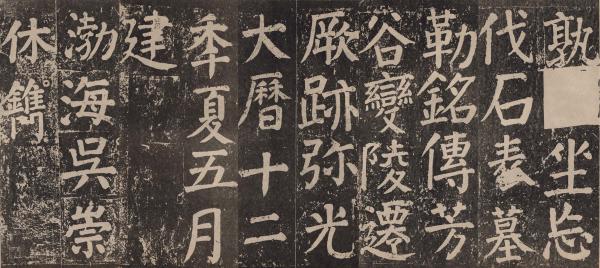 孰坐忘
伐石表墓
勒銘傳芳
谷變陵遷
厥跡弥光
大曆十二
年夏五月
建
渤海吳崇
休鐫